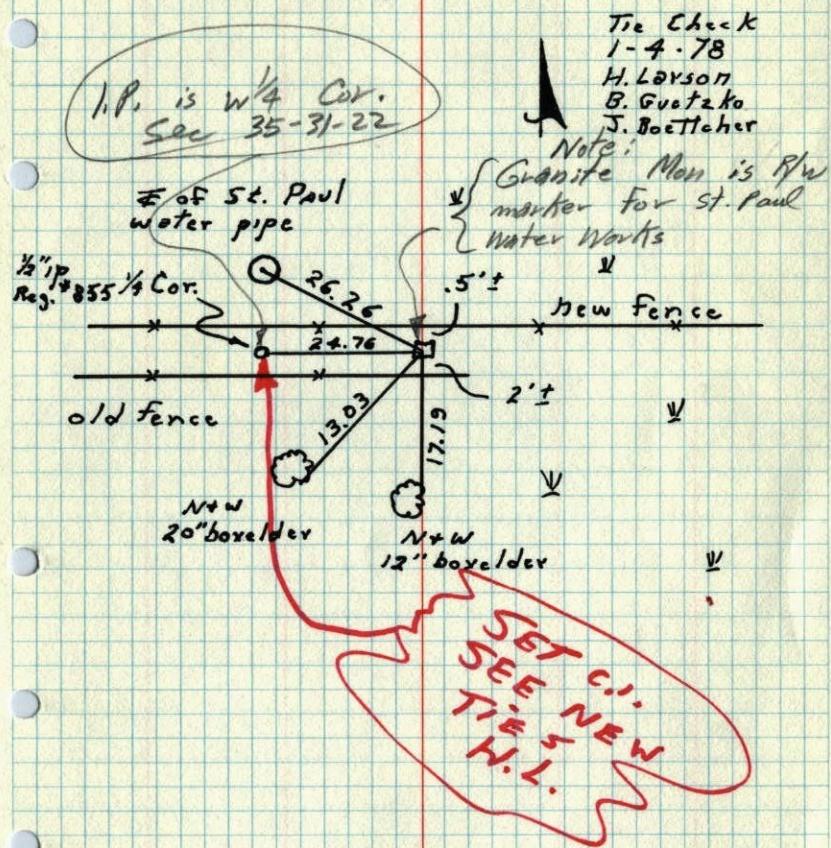 Tie Check
1-4-78
H. Larson
B. Guetzko
J. Boettcher
I.P. is W 1/4 Cor.
Sec 35-31-22
Note:
Granite Mon is R/W
marker For St. Paul
Water Works
℄ of St. Paul
water pipe
1/2" ip
Reg. #855 1/4 Cor.
26.26
.5'±
new fence
24.76
2'±
old fence
13.03
17.19
N+W
20" boxelder
N+W
12" boxelder
SET C.I.
SEE NEW
TIES
H.L.